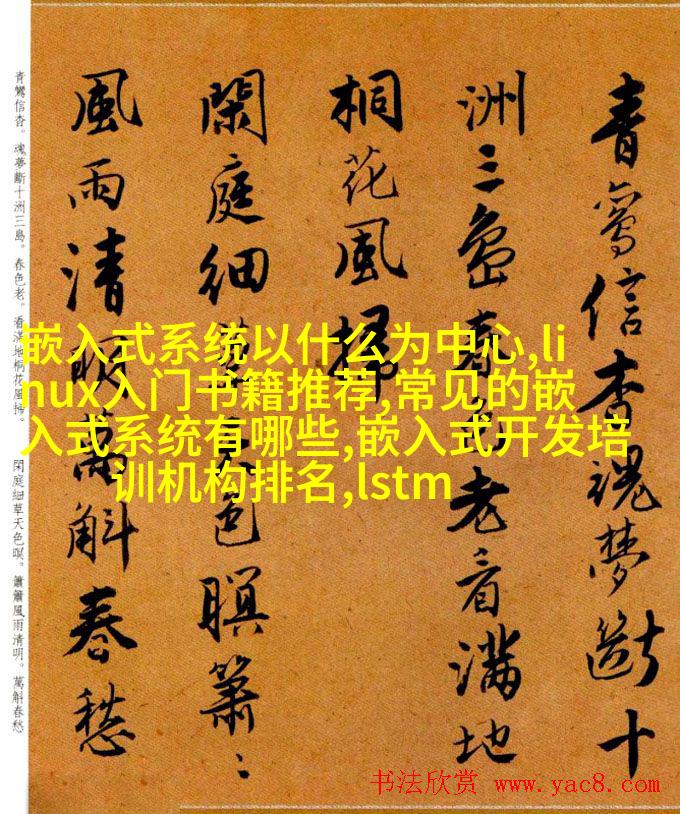 青鸞信杳魂夢斷十
洲三島春色老看滿地
桐花風掃
閑庭細草天色暝簫〻
風雨清明萬斛春愁
青鸞信杳。魂夢斷十洲三島。春色老。看滿地桐花風掃。　閑庭細草天色暝。簫簫風雨清明。萬斛春愁
嵌入式系统以什么为中心,li
nux入门书籍推荐,常见的嵌
入式系统有哪些,嵌入式开发培
训机构排名,lstm
书法欣赏 www.yac8.com